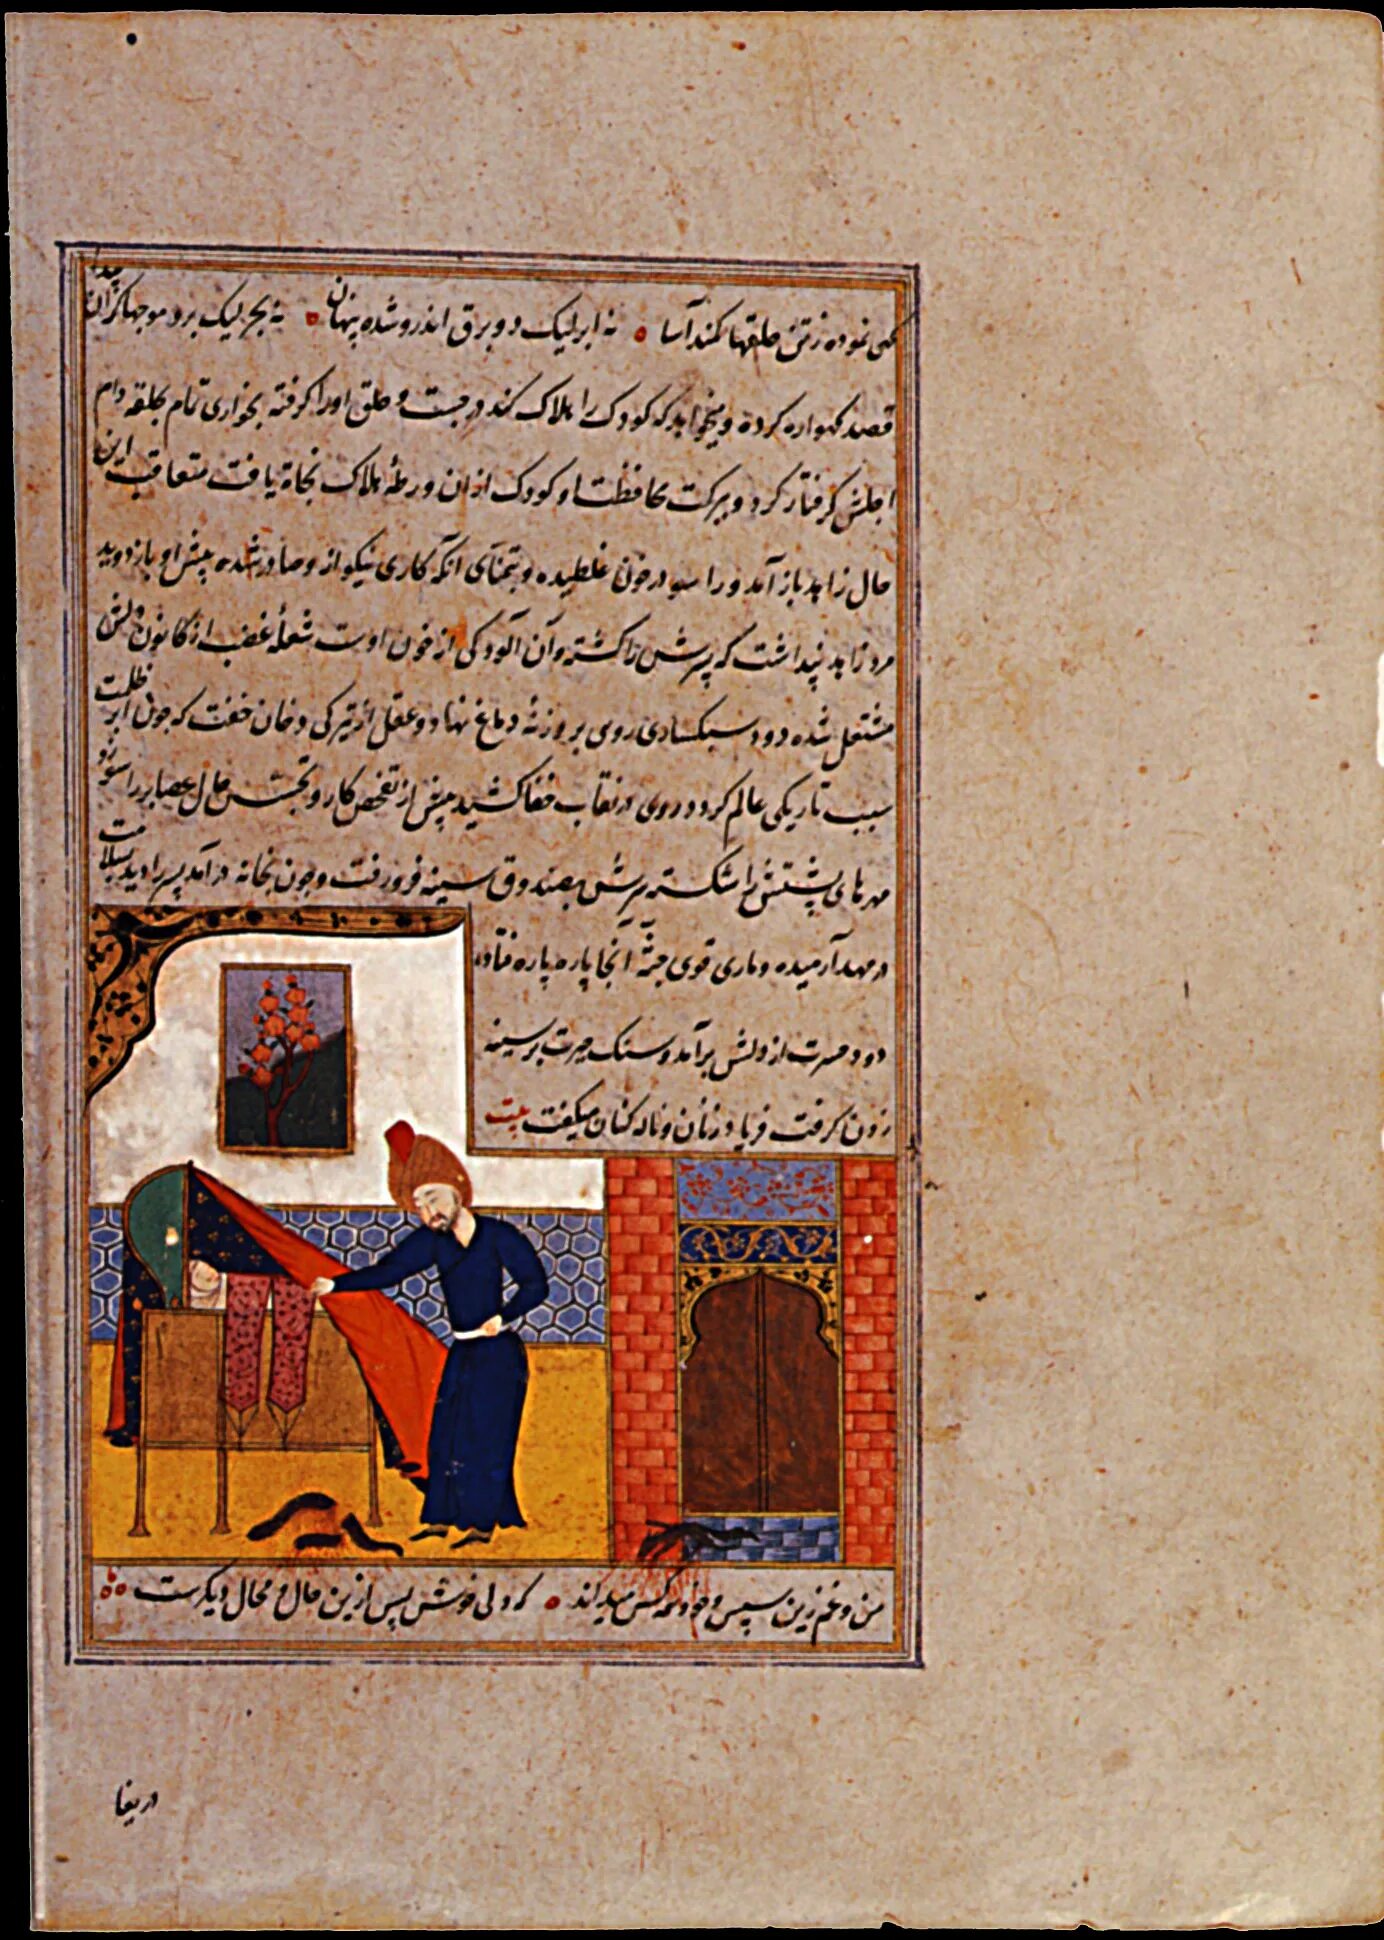 گهی نموده ز تن حلقها کمند آسا ۰ نه ابر لیک دو برق اندرو شده پنهان ۰ نه بحر لیک برو موجها کران پیدا
قصد کهواره کرده و میخواهد که کودک را هلاک کند در جست و حلق او را گرفته بخواری تمام بحلقه دام
اجلش گرفتار کرد و ببرکت محافظت او کودک از ان ورطهٔ هلاک نجاة یافت متعاقب این
حال زاهد باز آمد و راسو در خون غلطیده و بتمنای آنکه کاری نیکو از و صادر شده پیش او باز دوید
مرد زاهد پنداشت که پسرش را کشته و آن آلودکی از خون اوست شعلهٔ غضب از کانون دلش
مشتعل شده دود سبکساری روی بروزنهٔ دماغ نهاد و عقل از تیرکی دخان خفت که چون ابر ظلمت
سبب تاریکی عالم کردد روی در نقاب خفا کشید پیش از تفحص کار و تجسس حال عصا بر راسو زد
مهرهای پشتش را شکسته سرش بصندوق سینه فرو رفت و چون بخانه در آمد پسر را دید بسلامت
در مهد آرمیده و ماری قوی جثه آنجا پاره پاره فتاده
دود حسرت از دلش بر آمد و سنک حیرت بر سینه
زدن کرفت فریاد زنان و ناله کنان میکفت بیت
من و غم زین سپس و خود همه کس میداند ۰ که دلی خوش پس ازین حال و محال دیکرست
دریغا